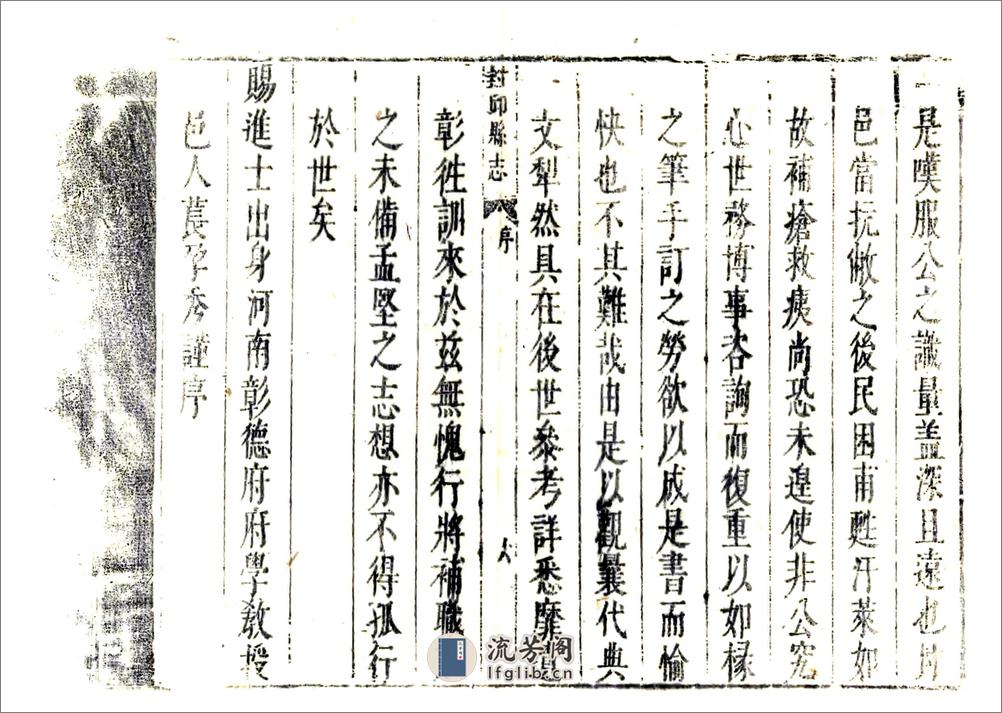 是嘆服公之識量盖深且遠也
邑當抏敝之後民困甫甦汙萊如
故補瘡救痍尚恐未遑使非公究
心世務博事咨詢而復重以如椽
之筆手訂之勞欲以成是書而愉
快也不其難哉由是以觀曩代典
文犁然具在後世叅考詳悉靡遺
封邱縣志 序 八
彰徃訓來於兹無愧行將補職
之未備孟堅之志想亦不得孤行
於世矣
賜進士出身河南彰德府府學敎授
邑人萇孕秀謹序
流芳阁
lfglib.cn